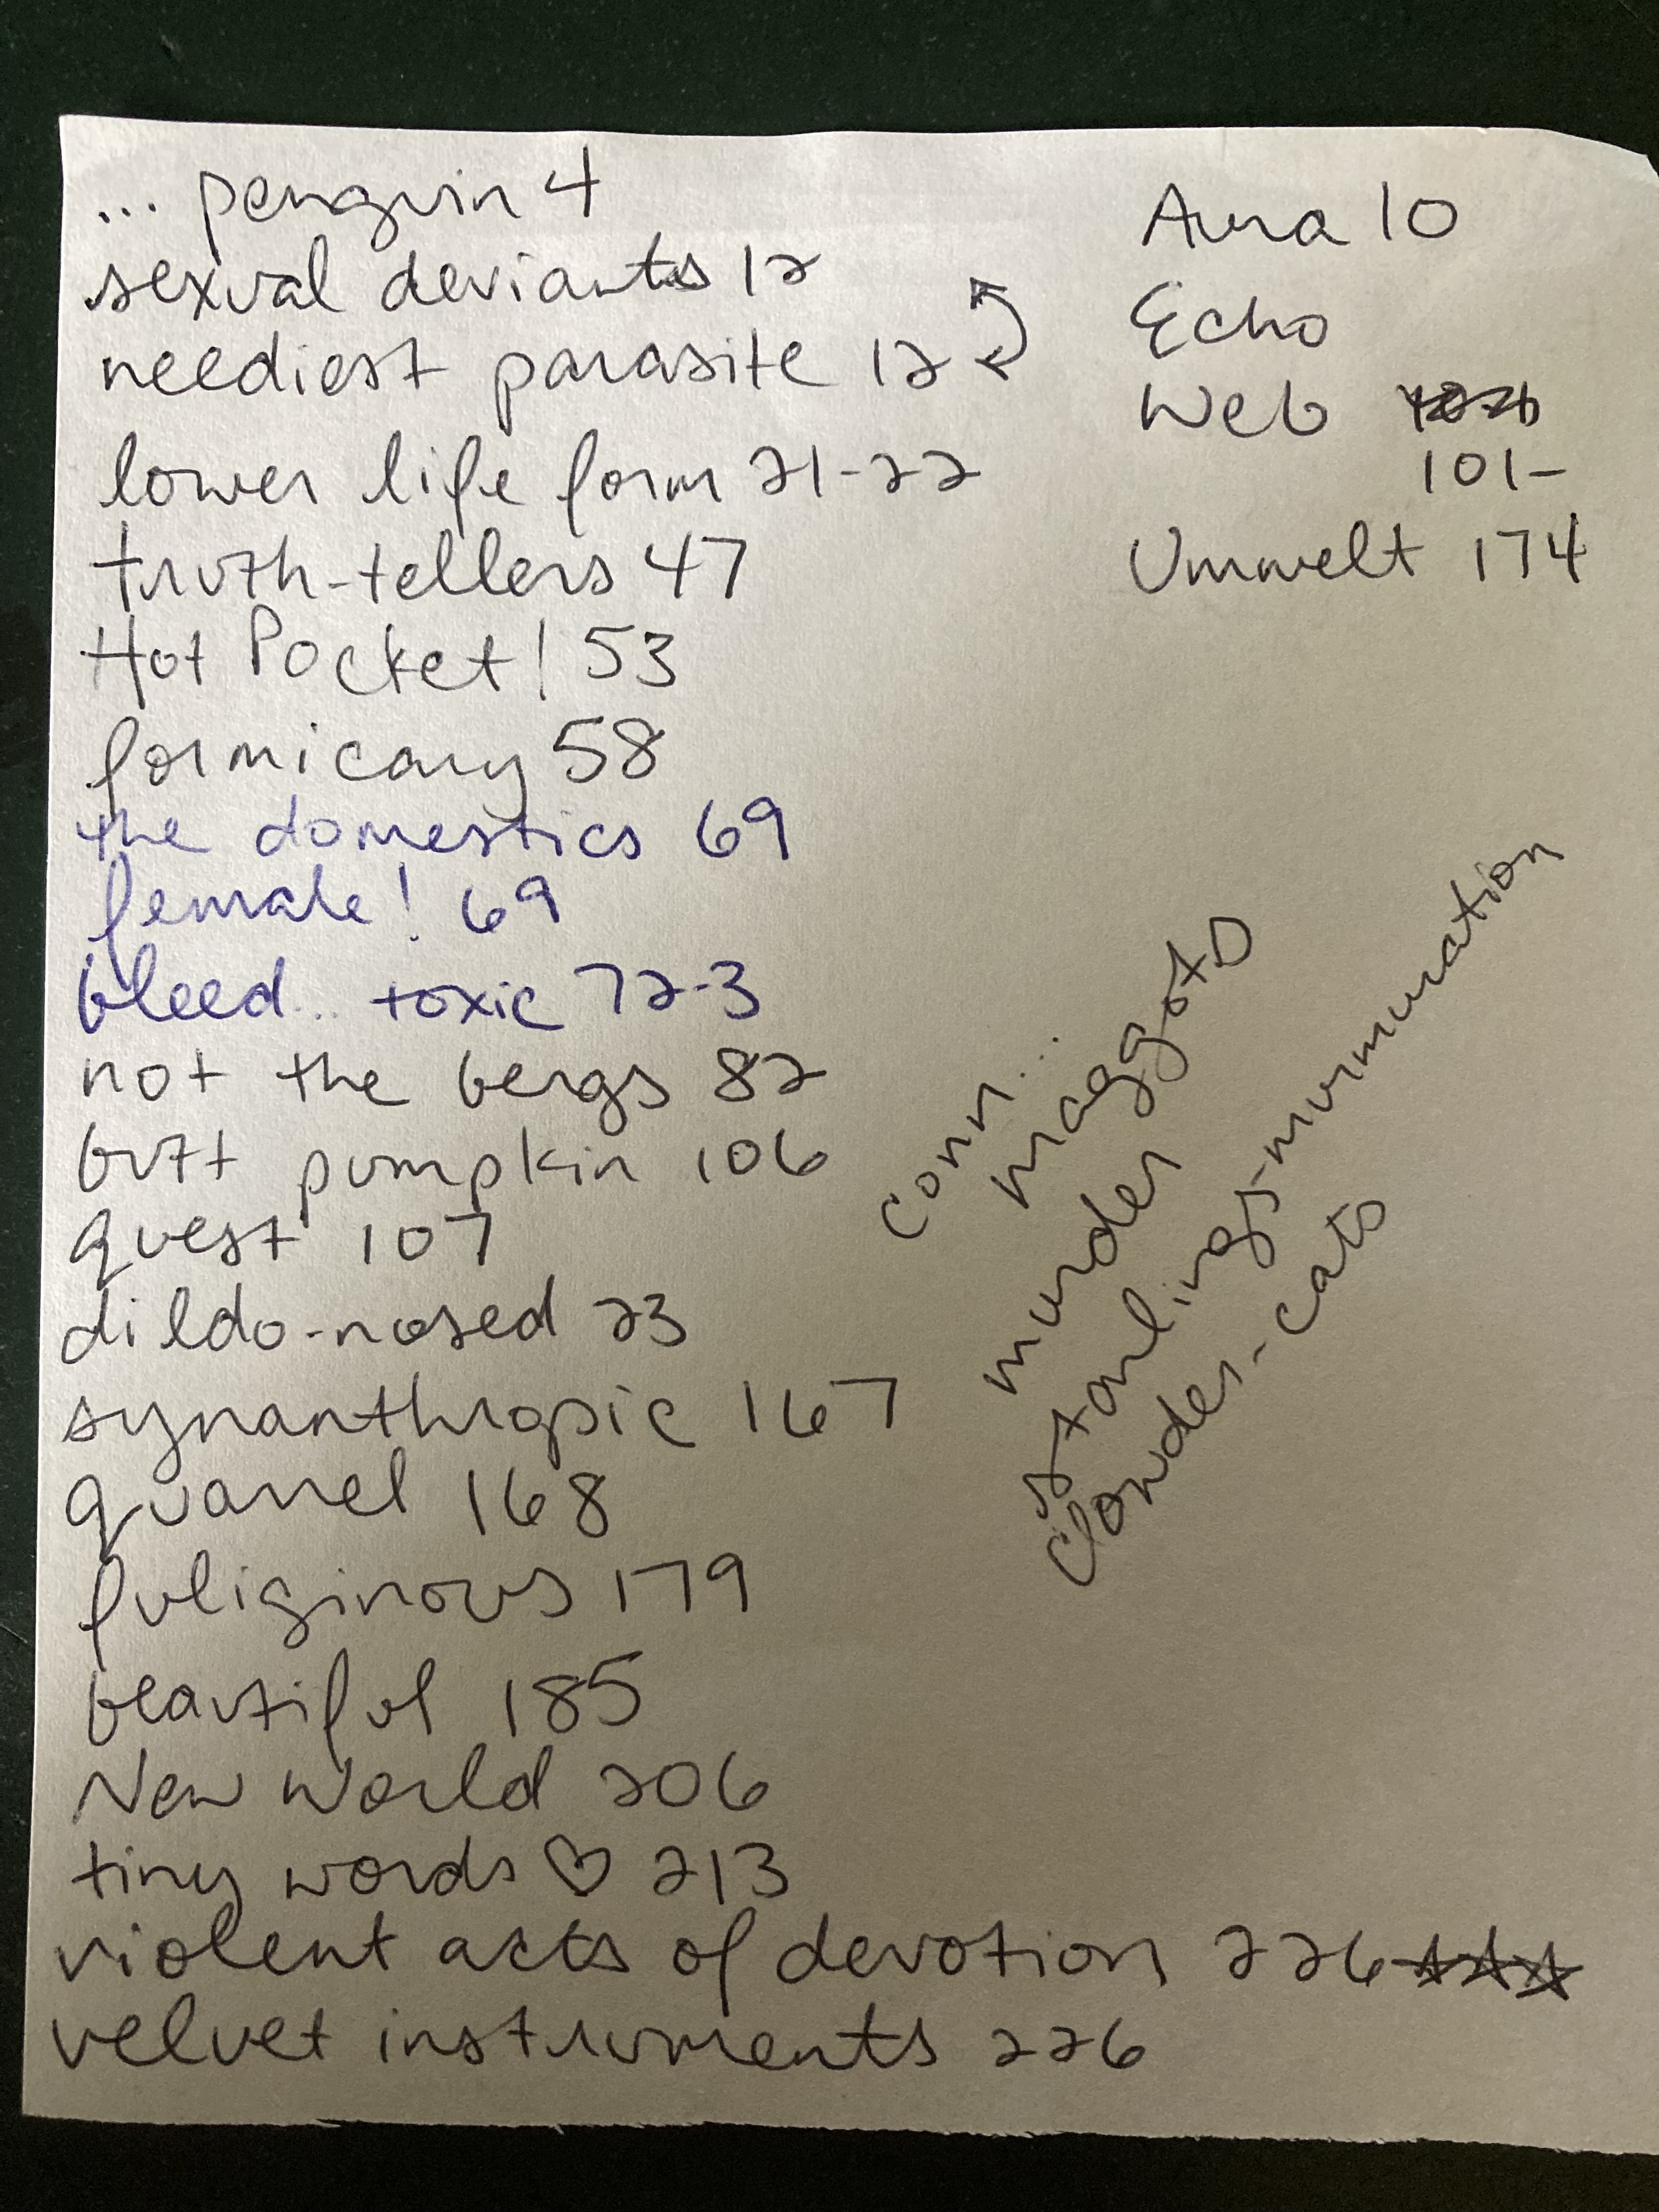 ... penguin 4
sexual deviants 12
neediest parasite 12
lower life form 21-22
truth-tellers 47
Hot Pocket! 53
formicary 58
the domestics 69
female! 69
bleed... toxic 72-3
not the bergs 82
butt pumpkin 106
quest 107
dildo-nosed 23
synanthropic 167
quarrel 168
fuliginous 179
beautiful 185
New World 206
tiny words ♡ 213
violent acts of devotion 226 ☆☆☆
velvet instruments 226
Aura 10
Echo
Web
101-
Umwelt 174
conn...
maggots
murder
starlings-murmuration
clowder-cats